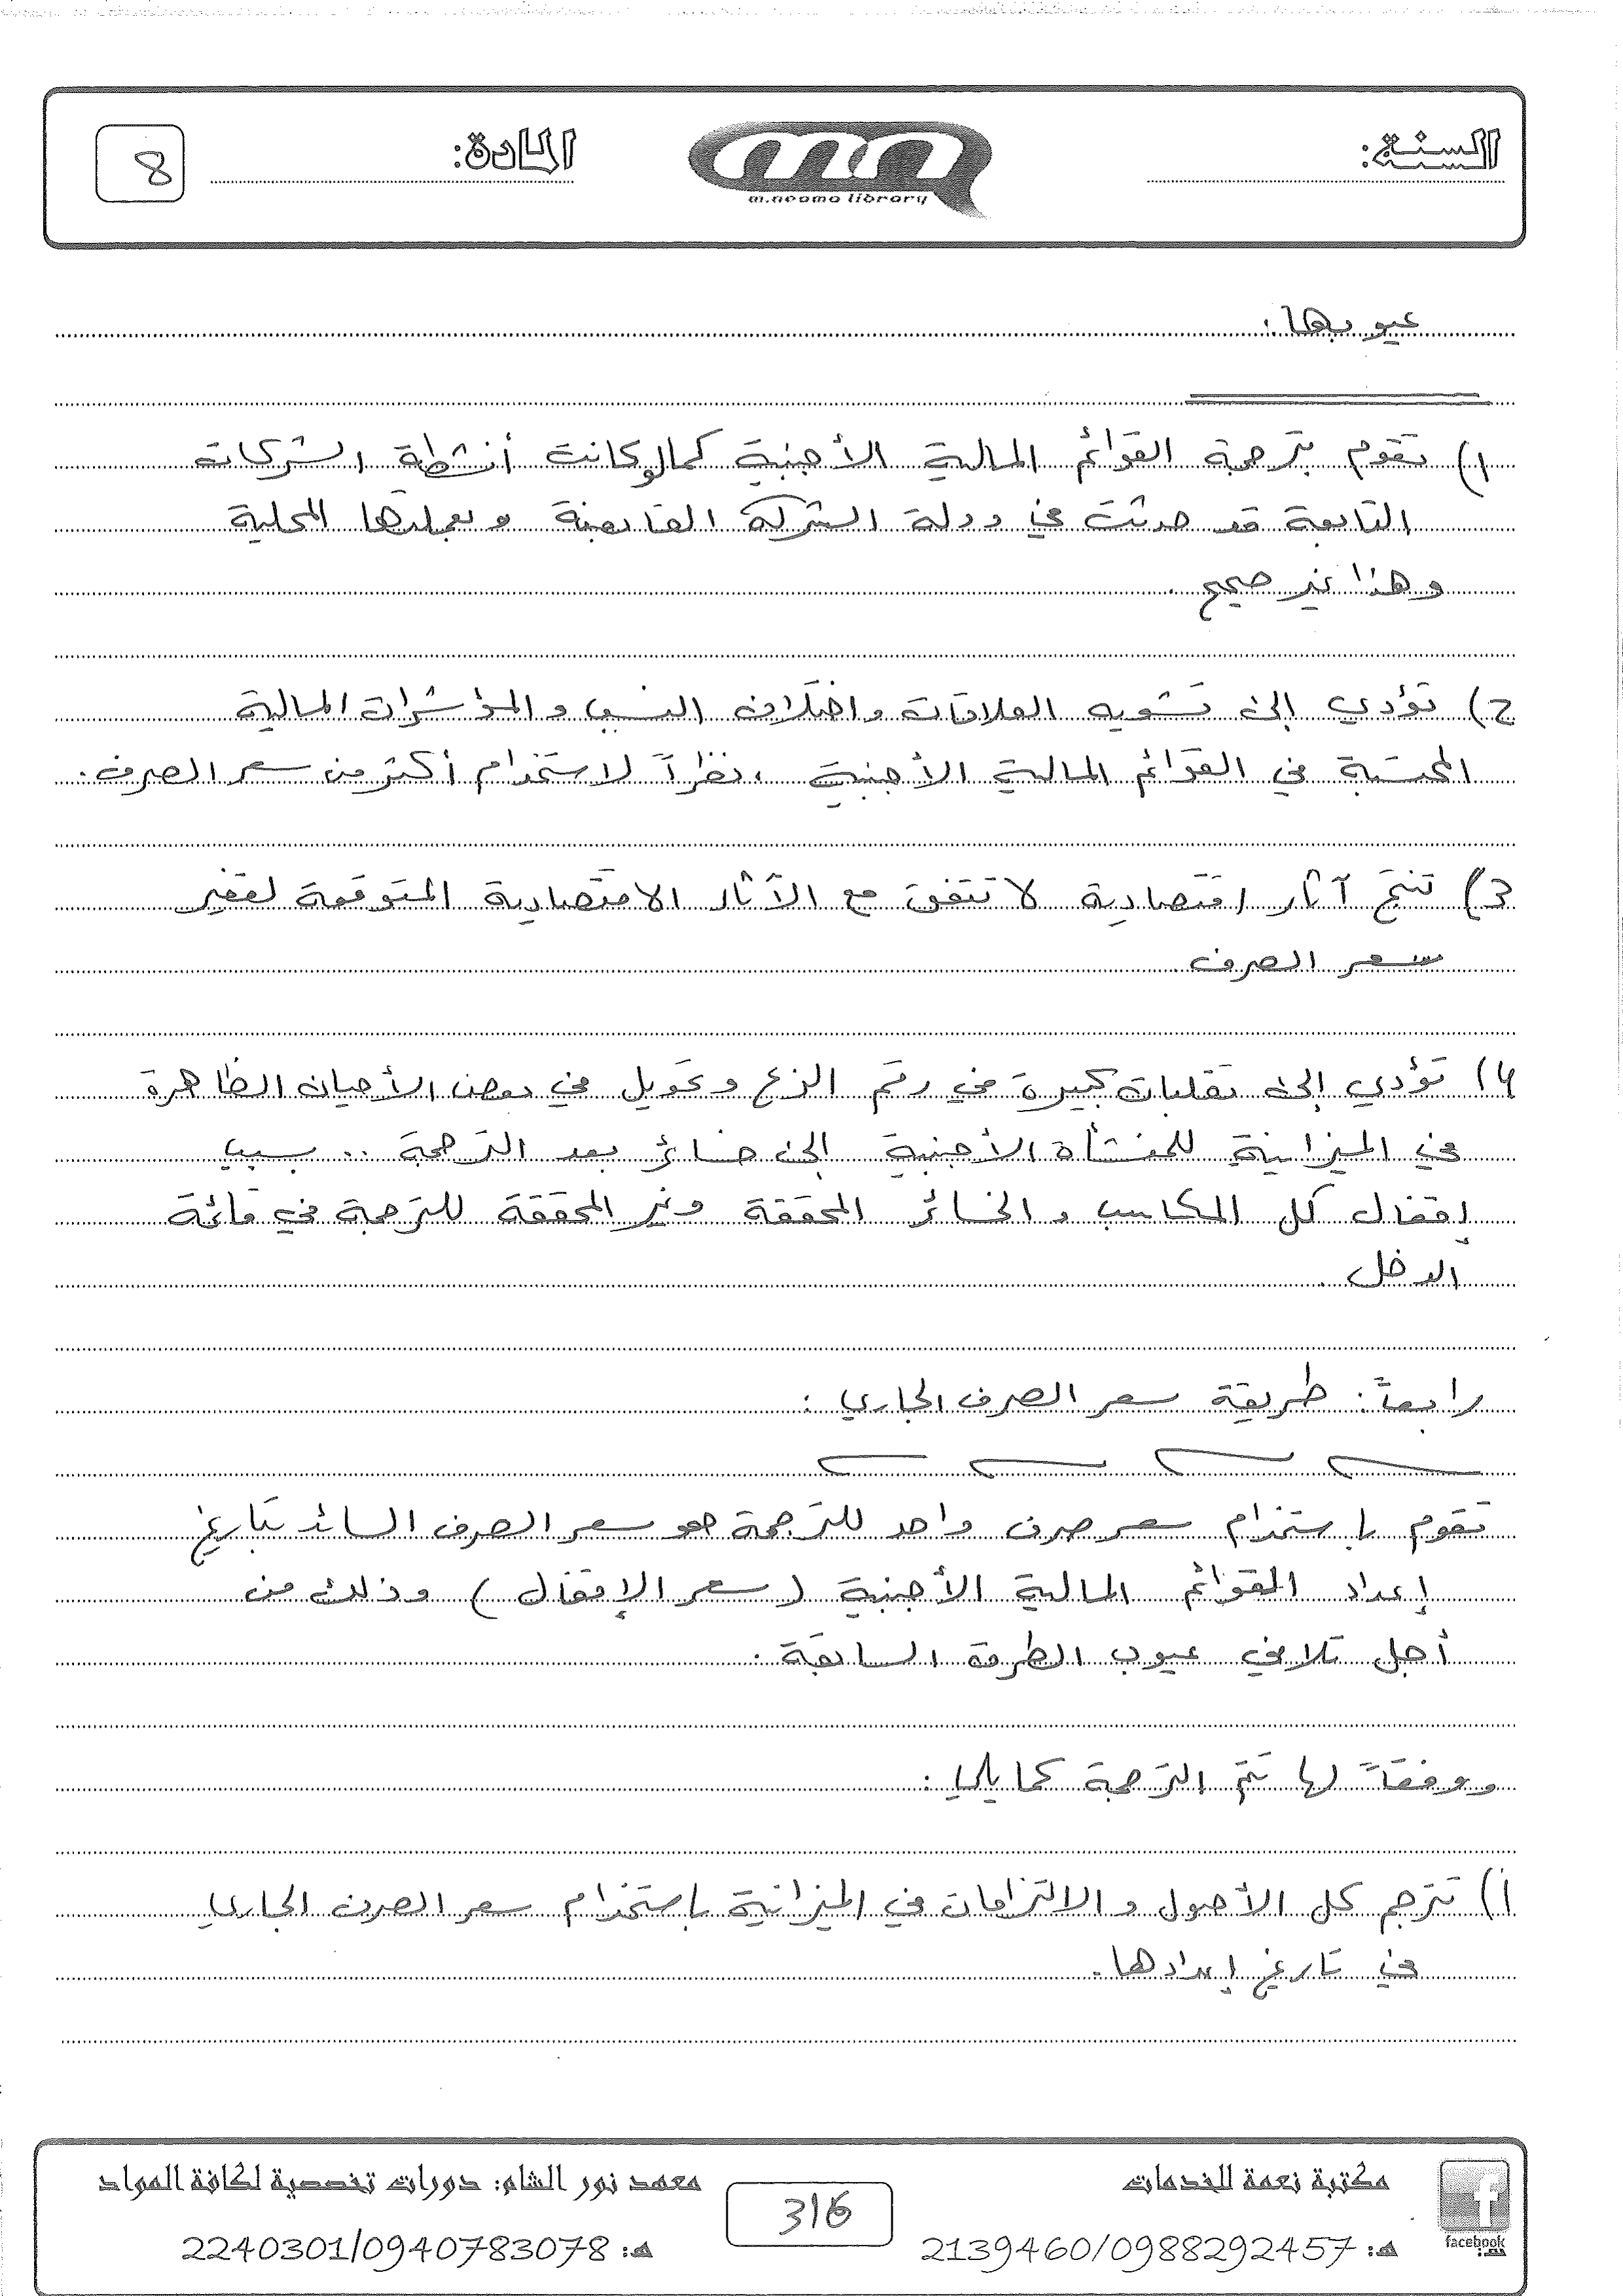 السنة:
m.neama library
المادة:
8
عيوبها:
1) تقوم بترجمة القوائم المالية الأجنبية كما لو كانت أنشطة الشركات
التابعة قد حدثت في دولة الشركة القابضة وبعملتها المحلية
وهذا غير صحيح.
2) تؤدي إلى تشويه العلاقات واختلاف النسب والمؤشرات المالية
المحتسبة في القوائم المالية الأجنبية، نظراً لاستخدام أكثر من سعر الصرف.
3) تنتج آثار اقتصادية لا تتفق مع الآثار الاقتصادية المتوقعة لتغير
سعر الصرف
4) تؤدي إلى تقلبات كبيرة في رقم الربح وتحويل في بعض الأحيان الظاهرة
في الميزانية للمنشأة الأجنبية إلى خسائر بعد الترجمة .. بسبب
إقفال كل المكاسب والخسائر المحققة وغير المحققة للترجمة في قائمة
الدخل.
رابعاً: طريقة سعر الصرف الجاري:
تقوم باستخدام سعر صرف واحد للترجمة هو سعر الصرف السائد بتاريخ
إعداد القوائم المالية الأجنبية (سعر الإقفال) وذلك من
أجل تلافي عيوب الطرق السابقة.
ووفقاً لها تتم الترجمة كما يلي:
أ) تترجم كل الأصول والالتزامات في الميزانية باستخدام سعر الصرف الجاري
في تاريخ إعدادها.
مكتبة نعمة للخدمات
هـ: 2139460/0988292457
facebook
316
معهد نور الشام: دورات تخصصية لكافة المواد
هـ: 2240301/0940783078